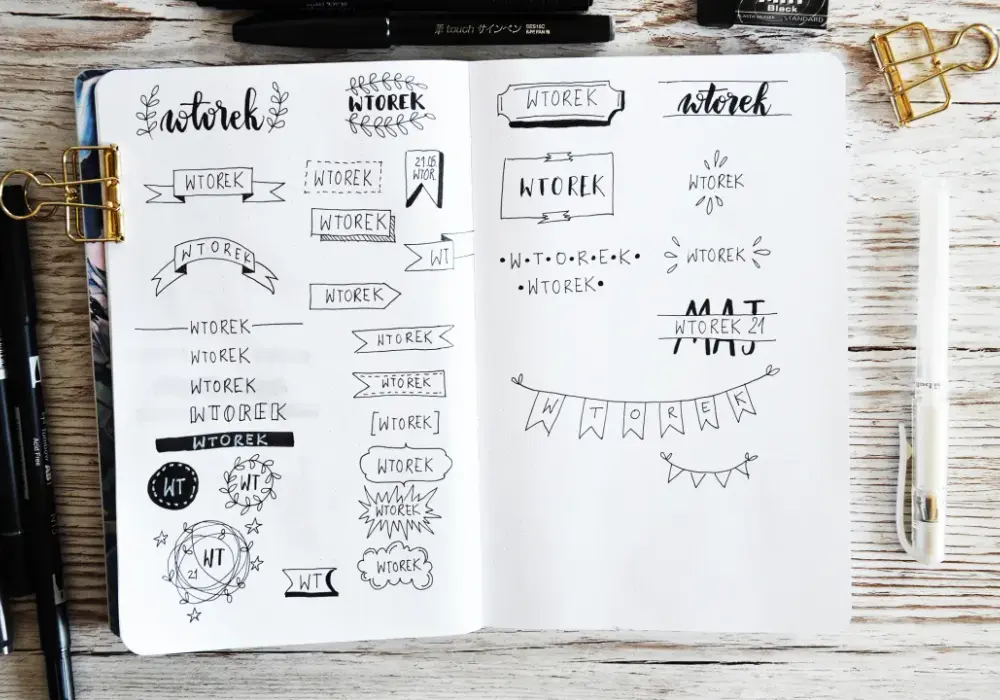 touch サインペン
Black
STANDARD
wtorek
WTOREK
WTOREK
WTOREK
21.05.
WTOR.
WTOREK
WT
WTOREK
WTOREK
WTOREK
WTOREK
WTOREK
WTOREK
WTOREK
WTOREK
WT
WT
WT
21
WTOREK
WTOREK
[WTOREK]
WTOREK
WTOREK
WTOREK
WT
WTOREK
wtorek
WTOREK
WTOREK
•W•T•O•R•E•K•
•WTOREK•
WTOREK
MAJ
WTOREK 21
W T O R E K
Acid Free